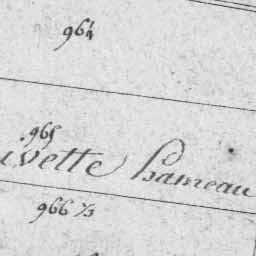 964
.965
ivette hameau
966 ½